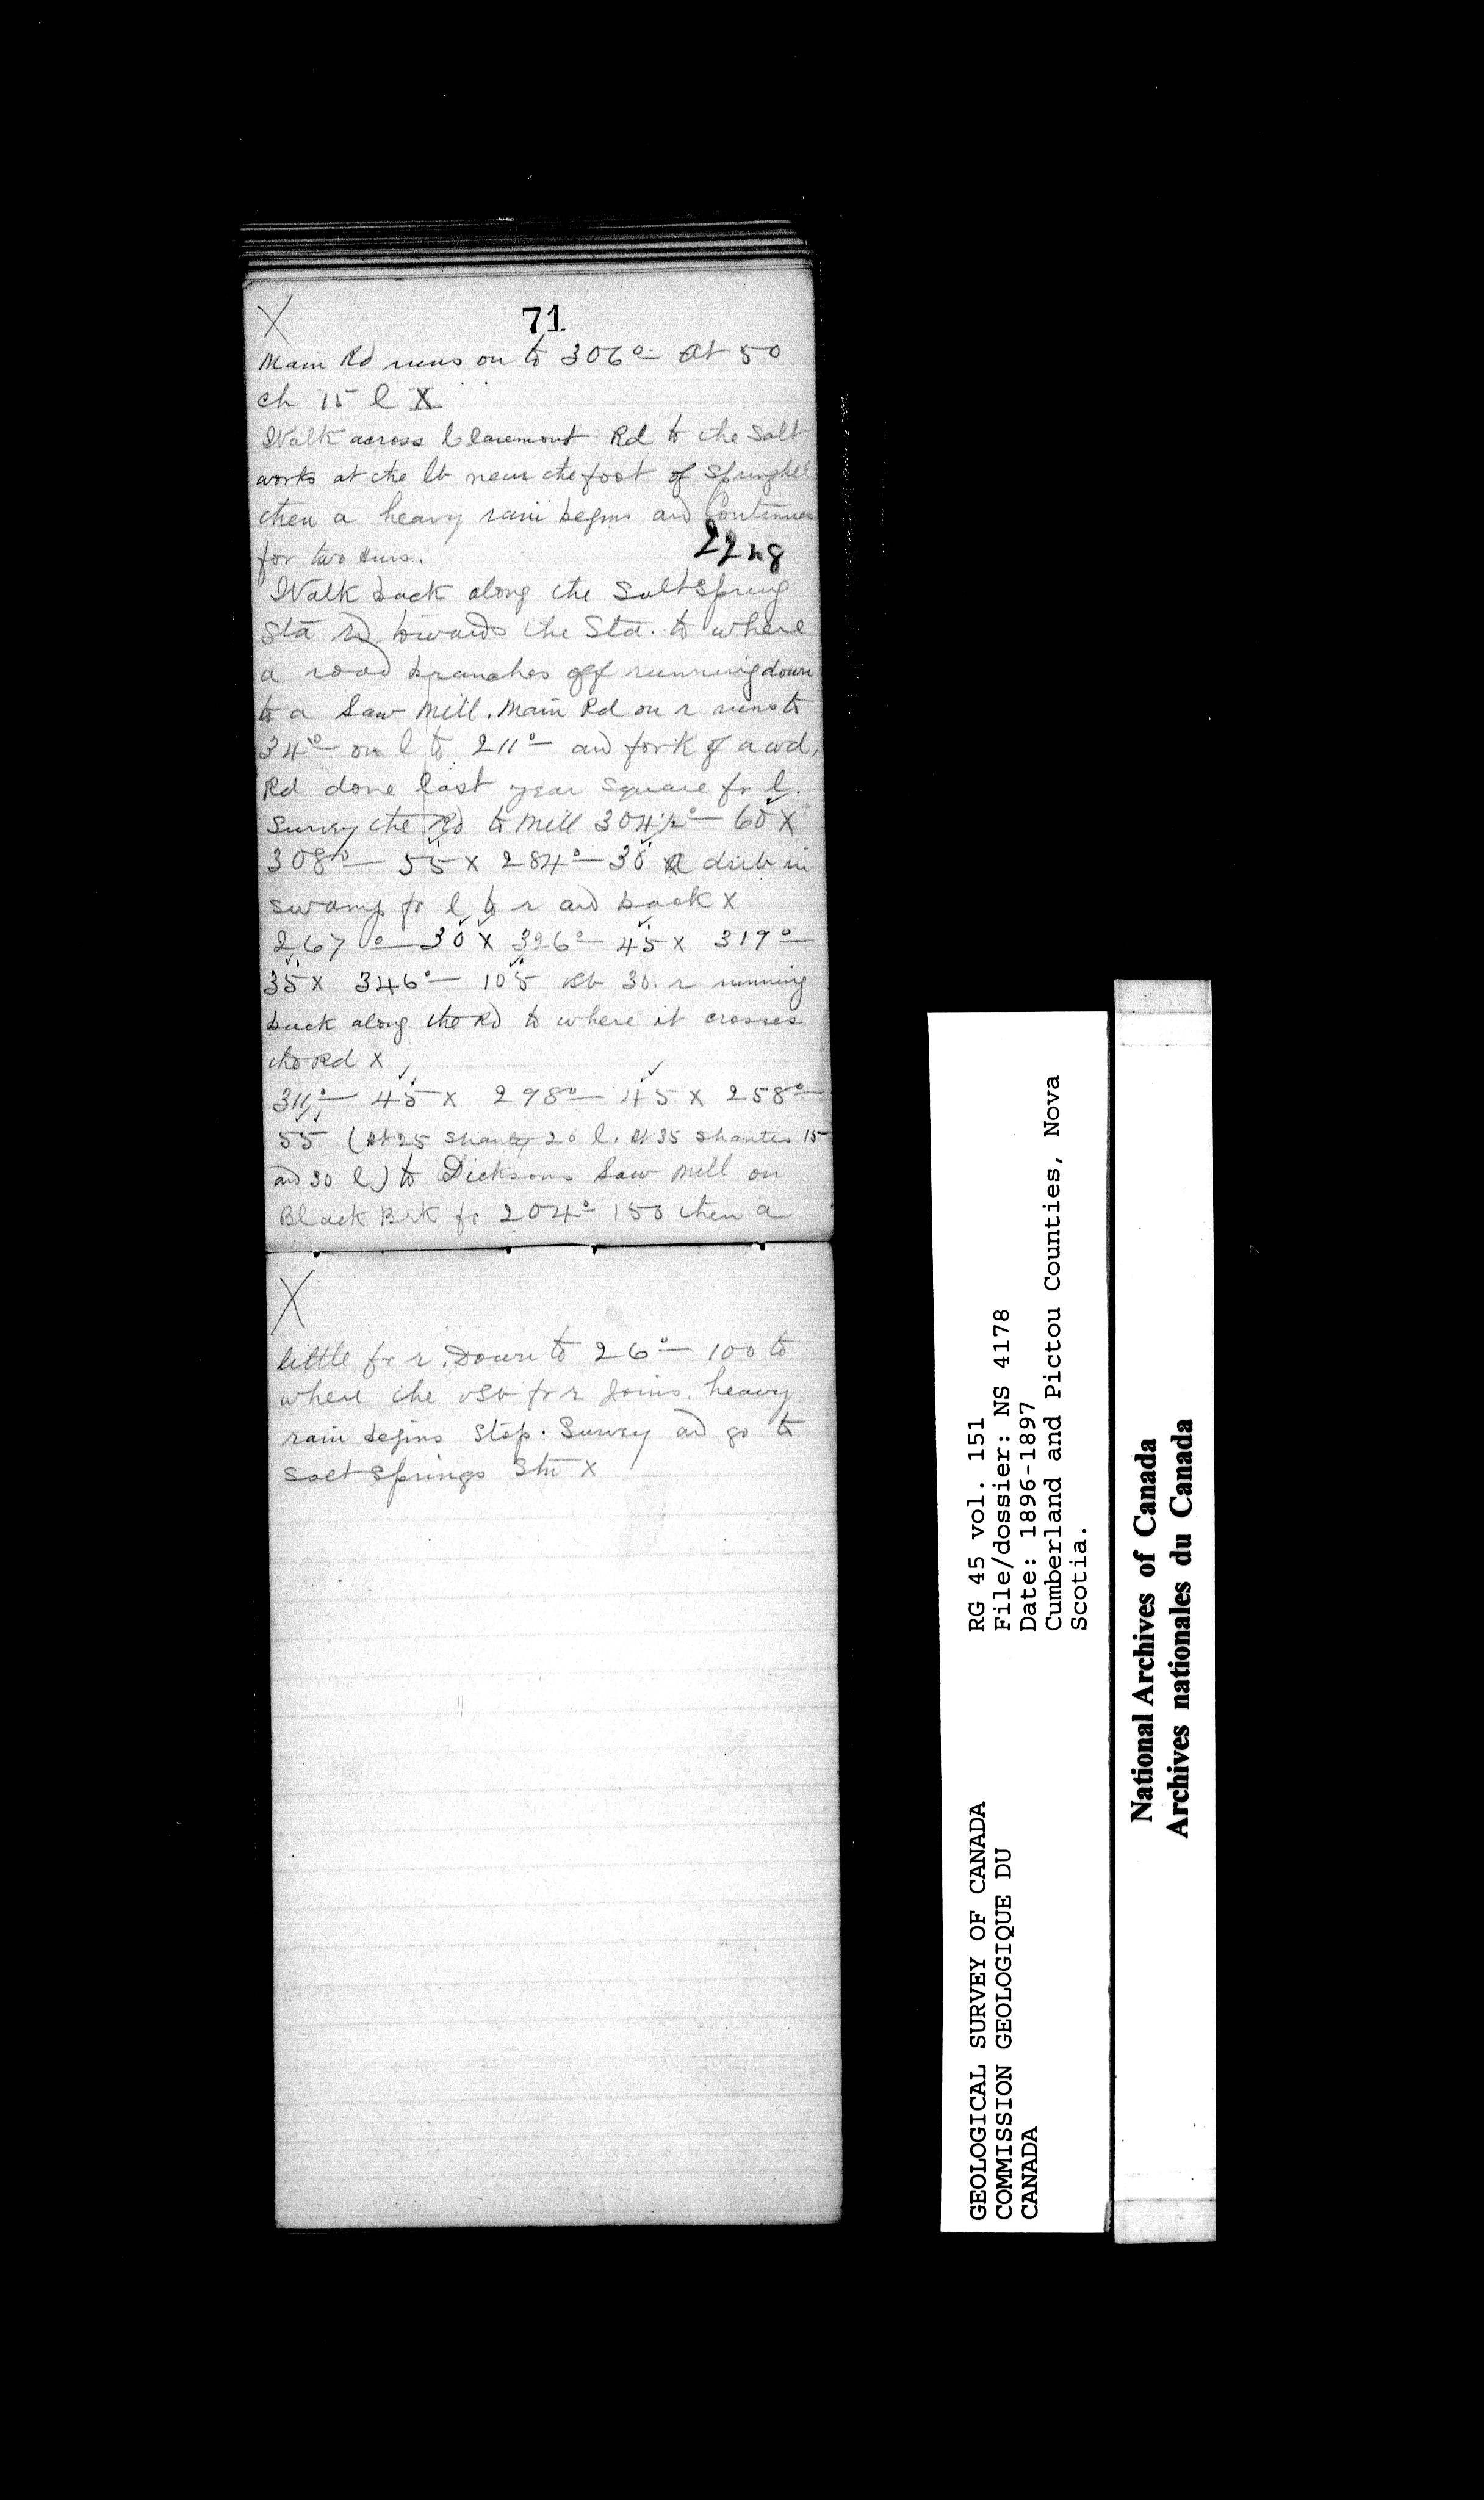 X
71
Main Rd runs on to 306° — At 50
ch 15 l X
Walk across Claremont Rd to the Salt
works at the lb near the foot of Springhill
then a heavy rain begins and Continues
for two Hurs.
Walk back along the Saltspring
Sta Rd towards the Sta. to where
a road branches off running down
to a Saw Mill. Main Rd on r runs to
34° — on l to 211° — and fork of a wd,
Rd done last year square fr l.
Survey the Rd to Mill 304½° — 60 X
308° — 55 X 284° — 30 a drib in
swamp fr l to r and back X
267° — 30 X 326° — 45 X 319° —
35 X 346° — 105 vsb 30. r running
back along the Rd to where it crosses
the Rd X
311° — 45 X 298° — 45 X 258° —
55 (At 25 Shanty 20 l. At 35 Shanties 15
and 30 l) to Dicksons Saw Mill on
Black Brk fr 204° 150 then a
X
little fr r. Down to 26° — 100 to
where the vsb fr r joins. heavy
rain begins Stop. Survey and go to
Salt Springs Stn X
RG 45 vol. 151
File/dossier: NS 4178
Date: 1896-1897
Cumberland and Pictou Counties, Nova
Scotia.
GEOLOGICAL SURVEY OF CANADA
COMMISSION GEOLOGIQUE DU
CANADA
National Archives of Canada
Archives nationales du Canada